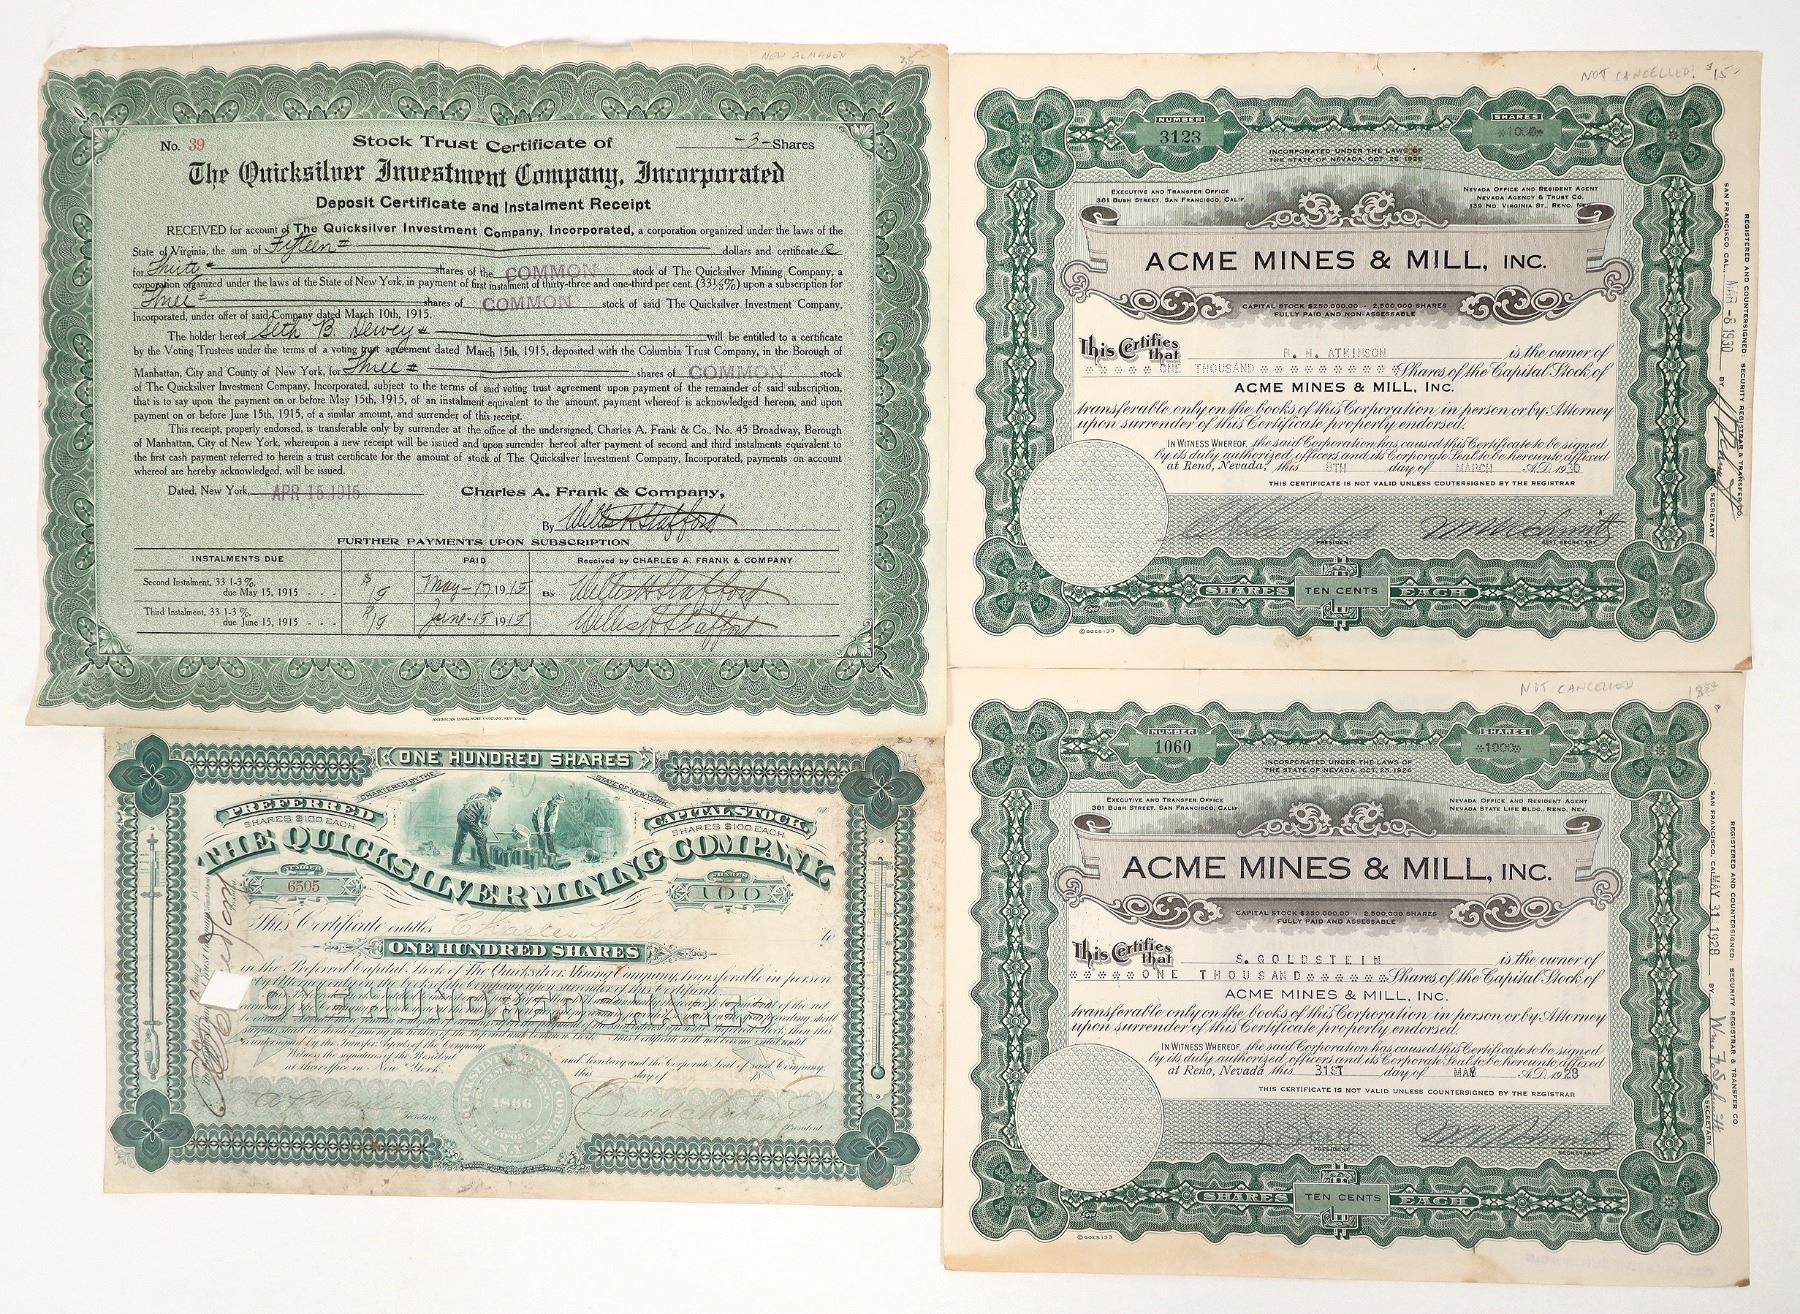 NEW ALMADEN 35
No. 39 Stock Trust Certificate of -3- Shares
The Quicksilver Investment Company, Incorporated
Deposit Certificate and Instalment Receipt
RECEIVED for account of The Quicksilver Investment Company, Incorporated, a corporation organized under the laws of the
State of Virginia, the sum of Fifteen dollars and certificate
for Thirty shares of the COMMON stock of The Quicksilver Mining Company, a
corporation organized under the laws of the State of New York, in payment of first instalment of thirty-three and one-third per cent. (33⅓%) upon a subscription for
Three shares of COMMON stock of said The Quicksilver Investment Company,
Incorporated, under offer of said Company dated March 10th, 1915.
The holder hereof Seth B. Dewey will be entitled to a certificate
by the Voting Trustees under the terms of a voting trust agreement dated March 15th, 1915, deposited with the Columbia Trust Company, in the Borough of
Manhattan, City and County of New York, for Three shares of COMMON stock
of The Quicksilver Investment Company, Incorporated, subject to the terms of said voting trust agreement upon payment of the remainder of said subscription,
that is to say upon the payment on or before May 15th, 1915, of an instalment equivalent to the amount, payment whereof is acknowledged hereon, and upon
payment on or before June 15th, 1915, of a similar amount, and surrender of this receipt.
This receipt, properly endorsed, is transferable only by surrender at the office of the undersigned, Charles A. Frank & Co., No. 45 Broadway, Borough
of Manhattan, City of New York, whereupon a new receipt will be issued and upon surrender hereof after payment of second and third instalments equivalent to
the first cash payment referred to herein a trust certificate for the amount of stock of The Quicksilver Investment Company, Incorporated, payments on account
whereof are hereby acknowledged, will be issued.
Dated, New York, APR 15 1915 Charles A. Frank & Company,
By Willis H Stafford
FURTHER PAYMENTS UPON SUBSCRIPTION
INSTALMENTS DUE PAID Received by CHARLES A. FRANK & COMPANY
Second Instalment, 33 1-3 %,
due May 15, 1915 - - - $15 May-17 1915 By Willis H Stafford
Third Instalment, 33 1-3 %
due June 15, 1915 - - - $15 June-15 1915 Willis H Stafford
AMERICAN BANK NOTE COMPANY, NEW YORK.
NOT CANCELLED! $15-
NUMBER 3123 SHARES *1000*
INCORPORATED UNDER THE LAWS OF
THE STATE OF NEVADA, OCT. 25, 1926
EXECUTIVE AND TRANSFER OFFICE
381 BUSH STREET, SAN FRANCISCO, CALIF
NEVADA OFFICE AND RESIDENT AGENT
NEVADA AGENCY & TRUST CO.
139 NO. VIRGINIA ST., RENO, NEV.
ACME MINES & MILL, INC.
CAPITAL STOCK $250,000.00 - 2,500,000 SHARES
FULLY PAID AND NON-ASSESSABLE
This Certifies that R. H. ATKINSON is the owner of
ONE THOUSAND Shares of the Capital Stock of
ACME MINES & MILL, INC.
transferable only on the books of this Corporation in person or by Attorney
upon surrender of this Certificate properly endorsed.
IN WITNESS WHEREOF, the said Corporation has caused this Certificate to be signed
by its duly authorized officers and its Corporate Seal to be hereunto affixed
at Reno, Nevada, this 8TH day of MARCH A.D. 1930
THIS CERTIFICATE IS NOT VALID UNLESS COUTERSIGNED BY THE REGISTRAR
PRESIDENT ASST. SECRETARY
SHARES TEN CENTS EACH
©GOES 133
REGISTERED AND COUNTERSIGNED: SECURITY REGISTRAR & TRANSFER CO.
SAN FRANCISCO, CAL., MAR -8 1930 BY SECRETARY
ONE HUNDRED SHARES
CHARTERED BY THE STATE OF NEW YORK
PREFERRED CAPITAL STOCK
SHARES $100 EACH SHARES $100 EACH
THE QUICKSILVER MINING COMPANY
6505 100
This Certificate entitles Charles to
ONE HUNDRED SHARES
in the Preferred Capital Stock of The Quicksilver Mining Company, transferable in person
ONE HUNDRED SHARES
Witness the signatures of the President and Secretary and the Corporate Seal of said Company,
at their office in New York, this day of
1866
Secretary President
NOT CANCELLED
NUMBER 1060 SHARES *1000*
INCORPORATED UNDER THE LAWS OF
THE STATE OF NEVADA, OCT. 25, 1926
EXECUTIVE AND TRANSFER OFFICE
381 BUSH STREET, SAN FRANCISCO, CALIF
NEVADA OFFICE AND RESIDENT AGENT
NEVADA STATE LIFE BLDG., RENO, NEV.
ACME MINES & MILL, INC.
CAPITAL STOCK $250,000.00 - 2,500,000 SHARES
FULLY PAID AND ASSESSABLE
This Certifies that S. GOLDSTEIN is the owner of
ONE THOUSAND Shares of the Capital Stock of
ACME MINES & MILL, INC.
transferable only on the books of this Corporation in person or by Attorney
upon surrender of this Certificate properly endorsed.
IN WITNESS WHEREOF, the said Corporation has caused this Certificate to be signed
by its duly authorized officers and its Corporate Seal to be hereunto affixed
at Reno, Nevada this 31ST day of MAY A.D. 1928
THIS CERTIFICATE IS NOT VALID UNLESS COUNTERSIGNED BY THE REGISTRAR
PRESIDENT SECRETARY
SHARES TEN CENTS EACH
©GOES 133
REGISTERED AND COUNTERSIGNED: SECURITY REGISTRAR & TRANSFER CO.
SAN FRANCISCO, CAL. MAY 31 1928 BY SECRETARY